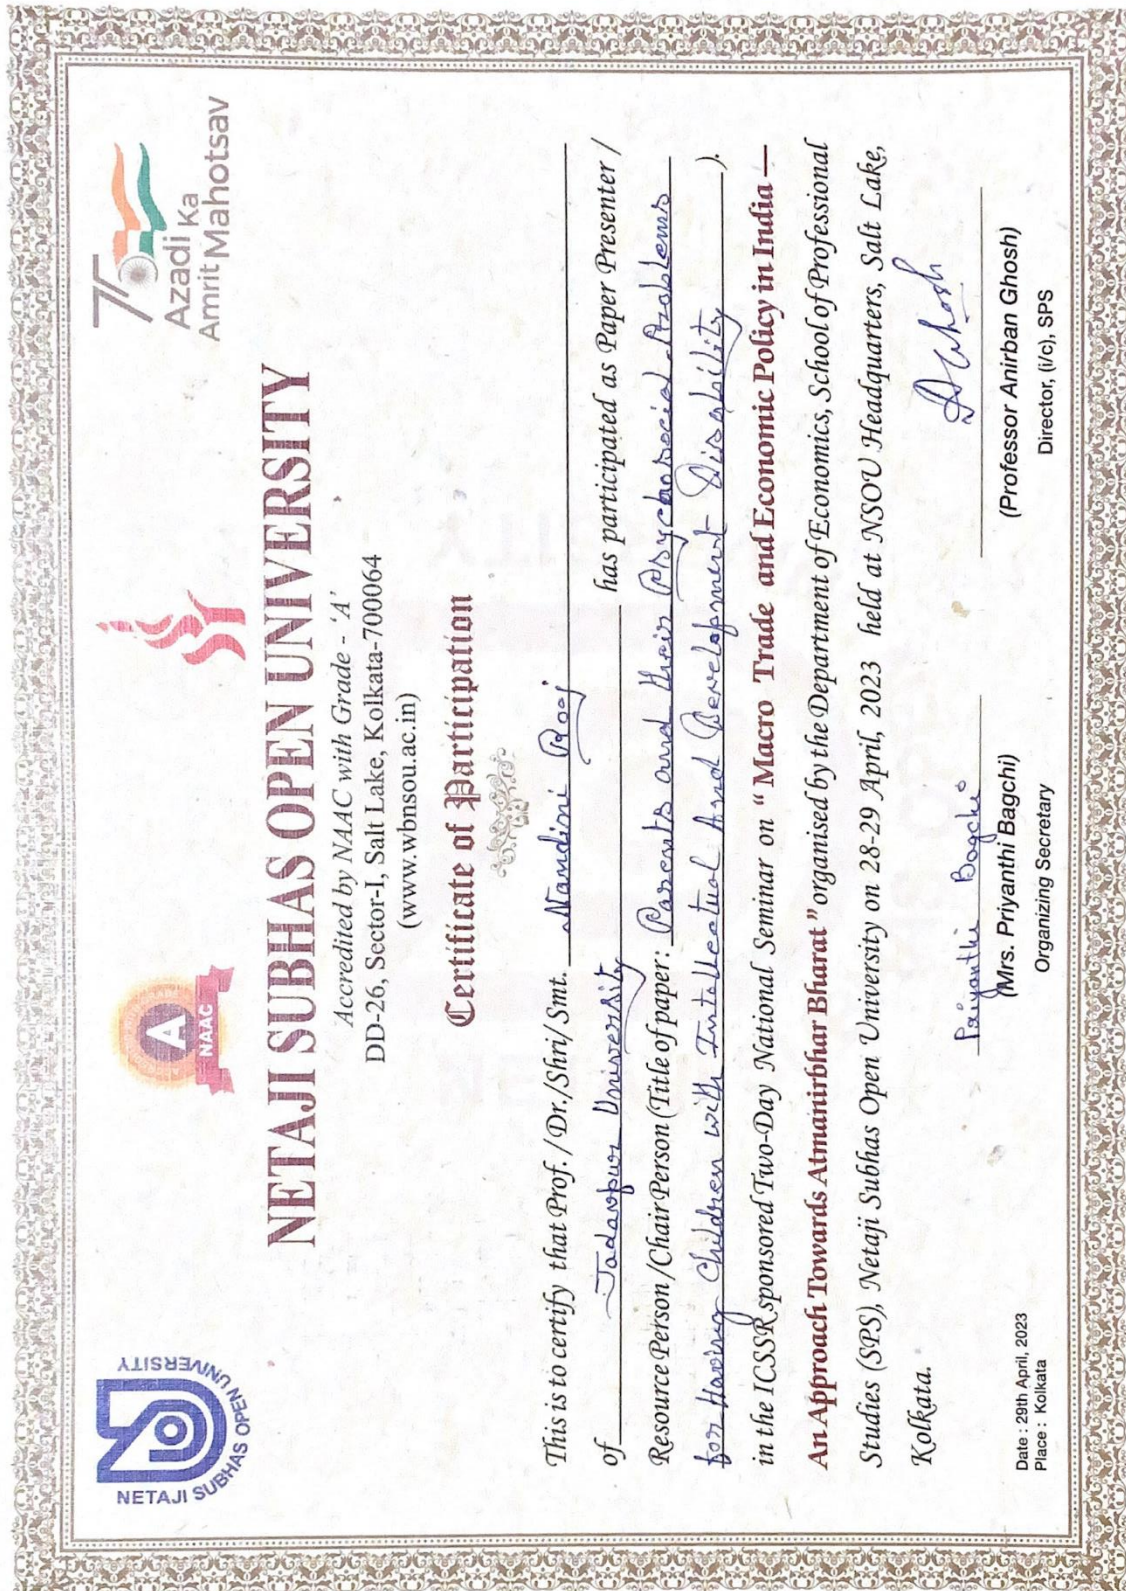 NETAJI SUBHAS OPEN UNIVERSITY
A
NAAC
75
Azadi Ka
Amrit Mahotsav
NETAJI SUBHAS OPEN UNIVERSITY
Accredited by NAAC with Grade - 'A'
DD-26, Sector-I, Salt Lake, Kolkata-700064
(www.wbnsou.ac.in)
Certificate of Participation
This is to certify that Prof. / Dr./Shri/ Smt. Nandini Rooj
of Jadavpur University has participated as Paper Presenter /
Resource Person /Chair Person (Title of paper: Parents and their Psychosocial Problems
for Having Children with Intellectual And Development Disability ).
in the ICSSR sponsored Two-Day National Seminar on “ Macro Trade and Economic Policy in India —
An Approach Towards Atmanirbhar Bharat ” organised by the Department of Economics, School of Professional
Studies (SPS), Netaji Subhas Open University on 28-29 April, 2023 held at NSOU Headquarters, Salt Lake,
Kolkata.
Priyanthi Bagchi
(Mrs. Priyanthi Bagchi)
Organizing Secretary
AGhosh
(Professor Anirban Ghosh)
Director, (i/c), SPS
Date : 29th April, 2023
Place : Kolkata